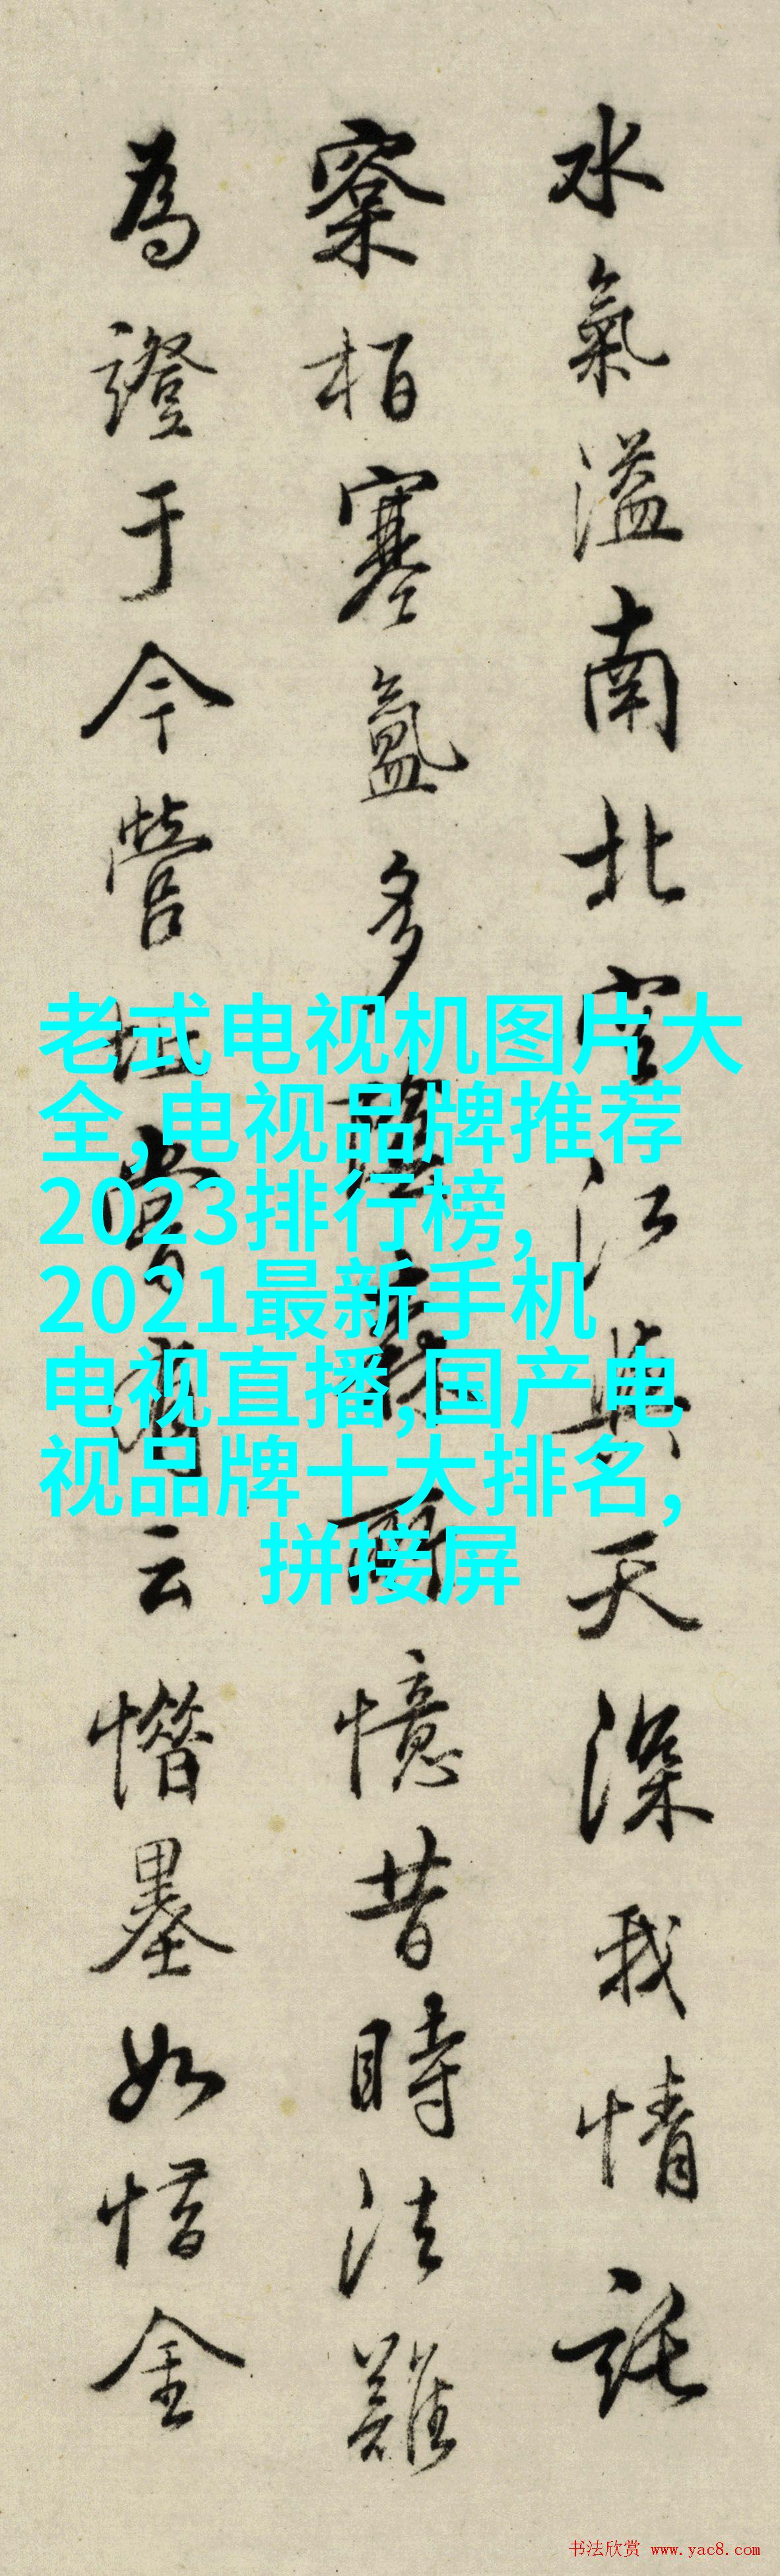 水氣溢南北空江與天深我情託
寥栢寒氲多憶昔時法難
為證于今營李云惜墨如惜金
老式电视机图片大
全,电视品牌推荐
2023排行榜,
2021最新手机
电视直播,国产电
视品牌十大排名,
拼接屏
书法欣赏 www.yac8.com